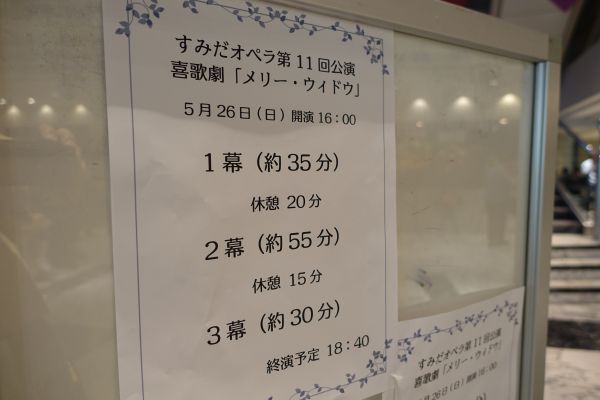 すみだオペラ第11回公演
喜歌劇「メリー・ウィドウ」
5月26日(日)開演16:00
1幕(約35分)
休憩 20分
2幕(約55分)
休憩 15分
3幕(約30分)
終演予定 18:40
すみだオペラ第11回公演
喜歌劇「メリー・ウィドウ」
5月26日(日)開演16:00